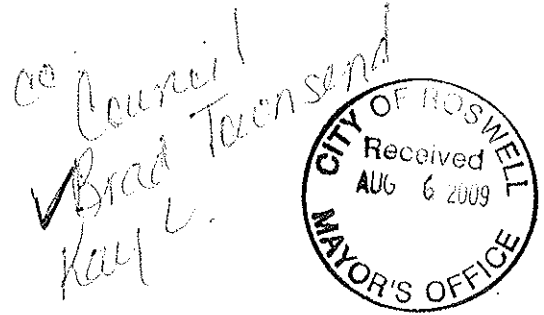 cc Council
✓Brad Townsend
Kay L.
CITY OF ROSWELL
Received
AUG 6 2009
MAYOR'S OFFICE